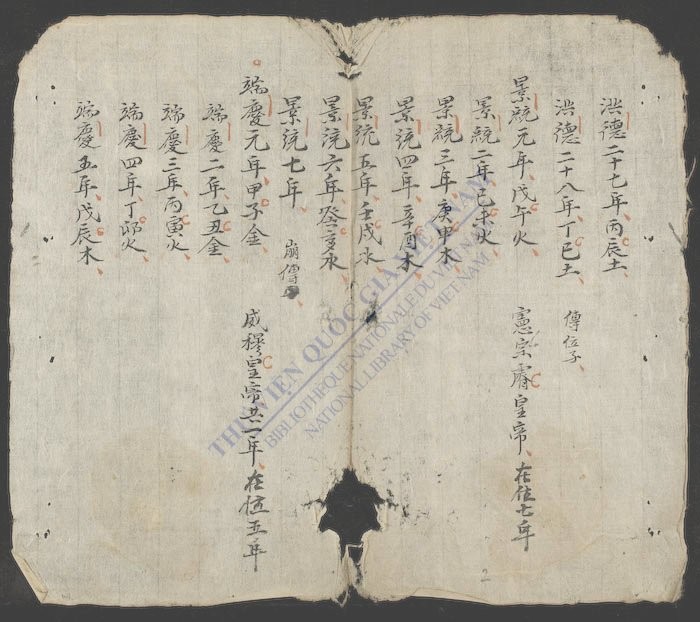 洪德二十七年丙辰土
洪德二十八年丁巳土 傳位子
景統元年戊午火 憲宗睿皇帝在位七年
景統二年己未火
景統三年庚申木
景統四年辛酉木
景統五年壬戌水
景統六年癸亥水
景統七年 崩傳
端慶元年甲子金 威穆皇帝 年在位五年
端慶二年乙丑金
端慶三年丙寅火
端慶四年丁卯火
端慶五年戊辰木
THƯ VIỆN QUỐC GIA VIỆT NAM
BIBLIOTHÈQUE NATIONALE DU VIETNAM
NATIONAL LIBRARY OF VIETNAM
2